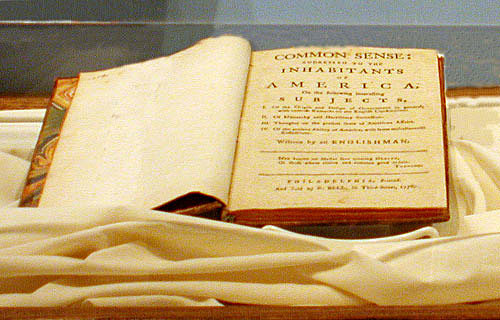 COMMON SENSE;
ADDRESSED TO THE
INHABITANTS
OF
AMERICA,
On the following interesting
SUBJECTS.
I. Of the Origin and Design of Government in general,
with concise Remarks on the English Constitution.
II. Of Monarchy and Hereditary Succession.
III. Thoughts on the present State of American Affairs.
IV. Of the present Ability of America, with some miscellaneous
Reflections.
Written by an ENGLISHMAN.
Man knows no Master save creating HEAVEN,
Or those whom choice and common good ordain.
THOMSON.
PHILADELPHIA, Printed.
And Sold by R. BELL, in Third-Street, 1776.